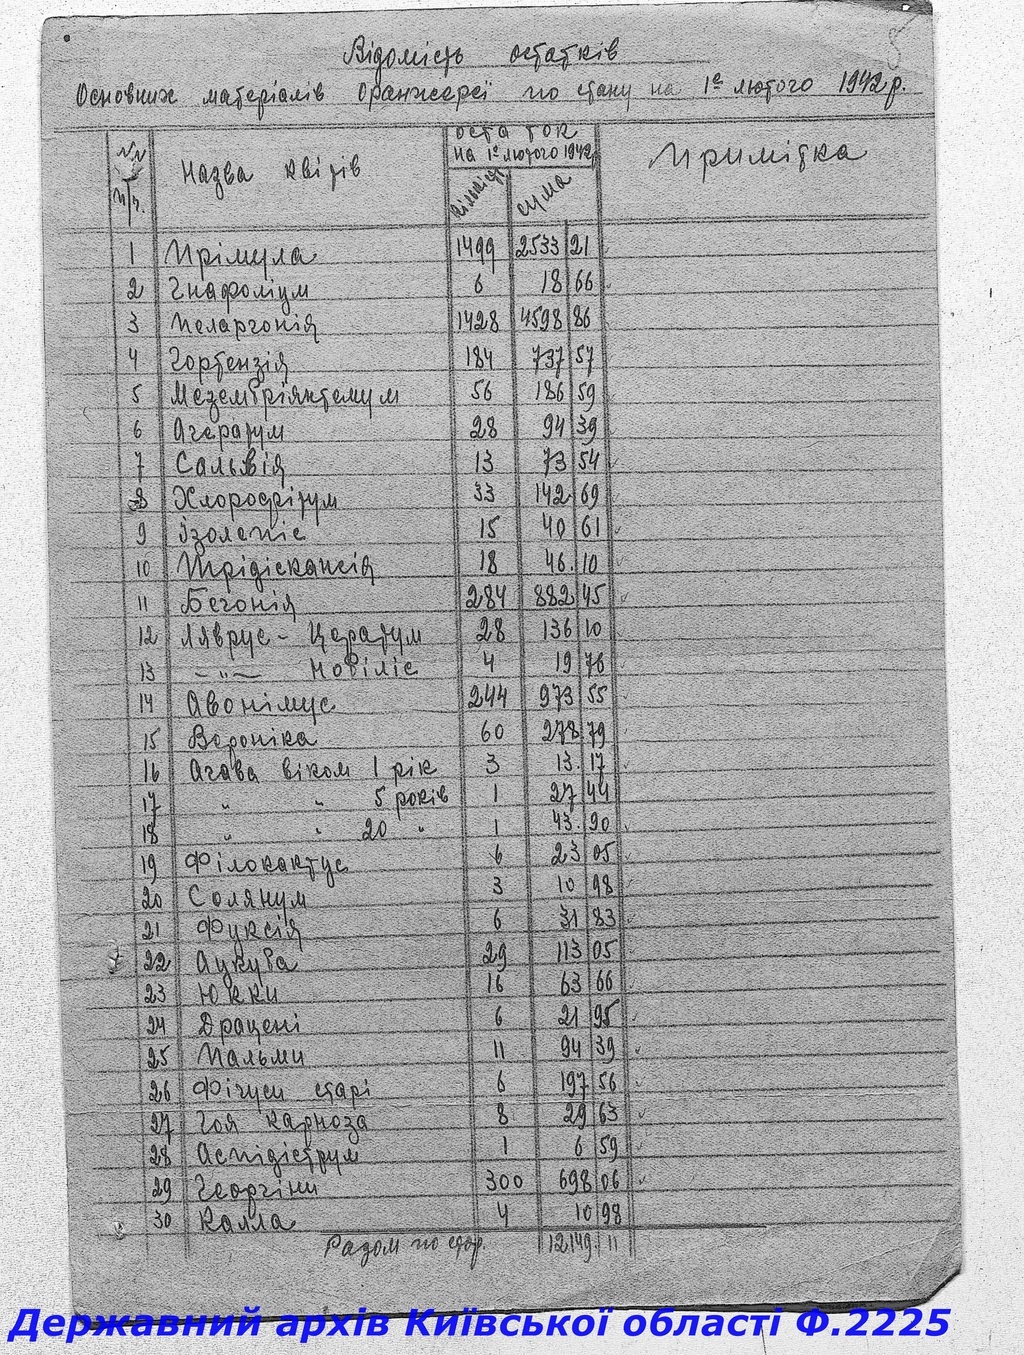 5
Відомість остатків
Основних матеріялів Оранжереї по стану на 1е лютого 1942 р.
NN п/п. Назва квітів Остаток на 1е лютого 1942 р. кількість сума Примітка
1 Прімула 1499 2533 21
2 Гнафоліум 6 18 66
3 Пеларгонія 1428 4598 86
4 Гортензія 184 737 57
5 Мезембріянтемум 56 186 59
6 Агератум 28 94 39
7 Сальвія 13 73 54
8 Хлорофітум 33 142 69
9 Ізолепіс 15 40 61
10 Трідіскансія 18 46. 10
11 Бегонія 284 882 45
12 Ляврус - Цератум 28 136 10
13 -"- Нобіліс 4 19 76
14 Авонімус 244 973 55
15 Вероніка 60 278 79
16 Агава віком 1 рік 3 13. 17
17 " " 5 років 1 27 44
18 " " 20 " 1 43. 90
19 Філокактус 6 23 05
20 Солянум 3 10 98
21 Фуксія 6 31 83
22 Аукуба 29 113 05
23 Юкки 16 63 66
24 Драцені 6 21 95
25 Пальми 11 94 39
26 Фігуси старі 6 197 56
27 Гоя карноза 8 29 63
28 Аспідіструм 1 6 59
29 Георгіни 300 698 06
30 Калла 4 10 98
Разом по стор. 12149. 11
Державний архів Київської області Ф.2225